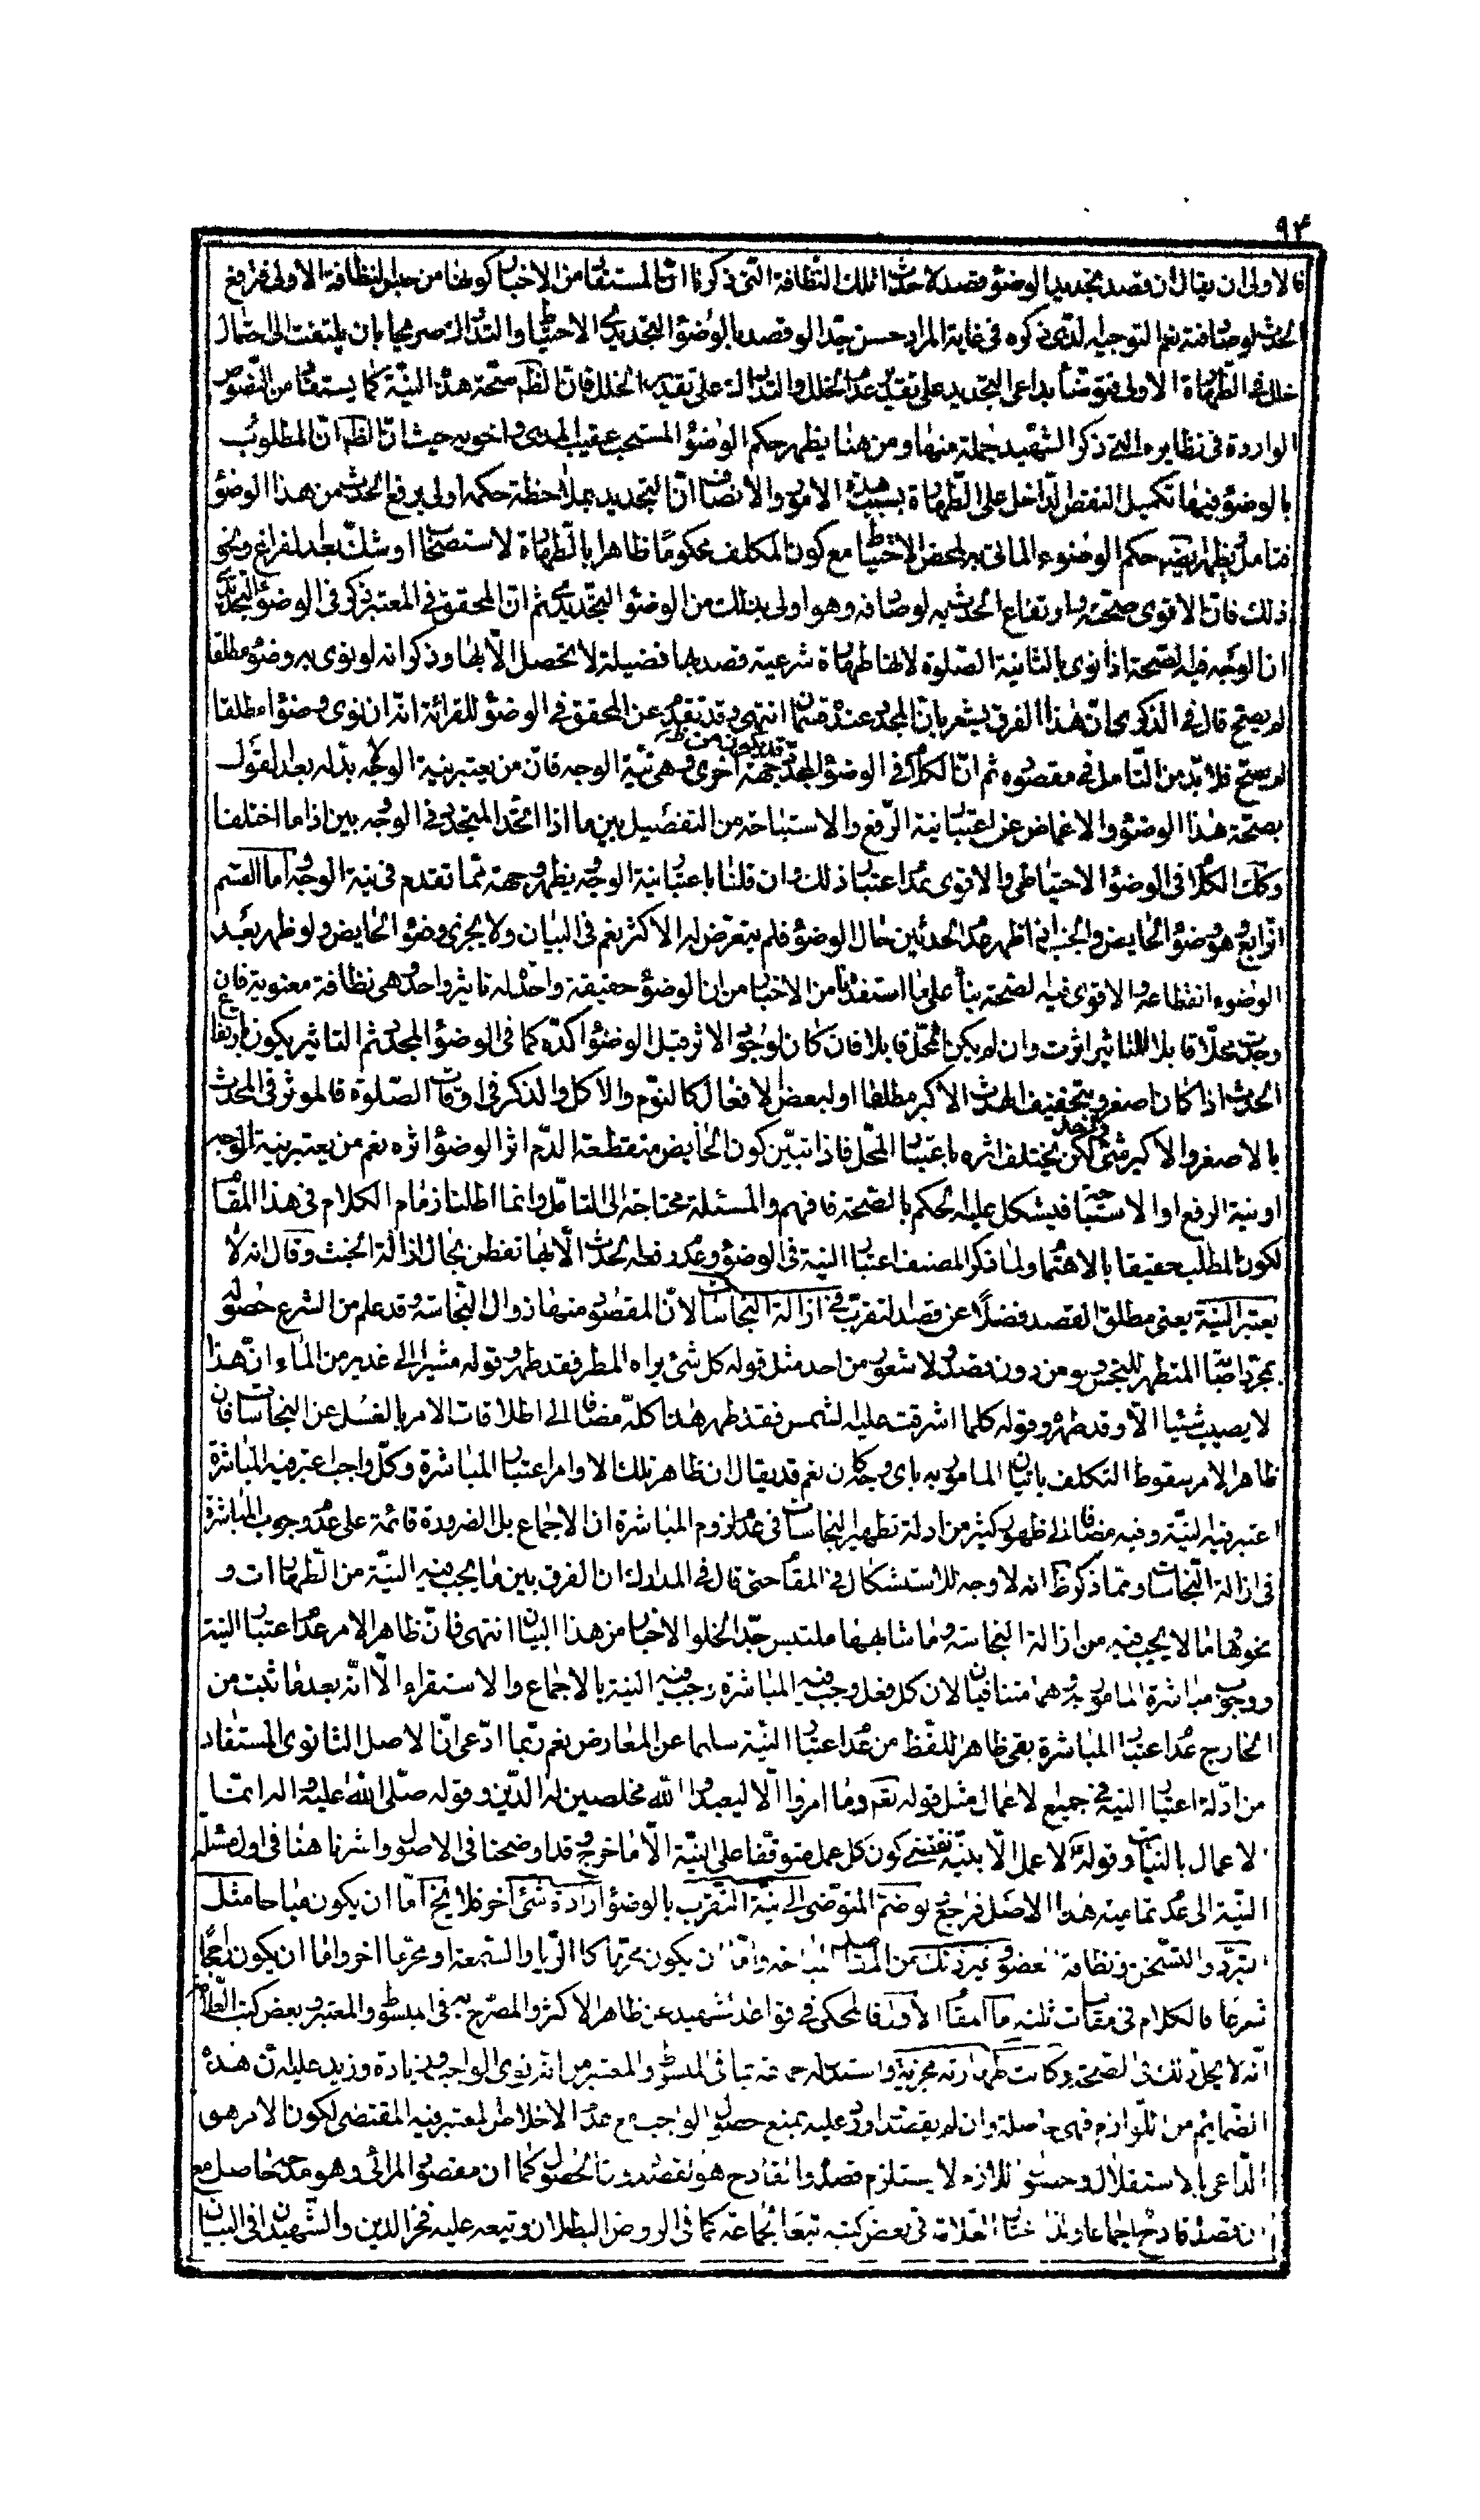 ٩٤
فالاولى ان يقال ان قصد تجديد الوضوء قصد لاحداث تلك النظافة التى ذكرنا ان المستفاد من الاخبار كونها من جنس النظافة الاولى فترفع
الحدث لو صادفته نعم التوجيه الذى ذكره فى غاية المراد حسن جدا لو قصد بالوضوء التجديدى الاحتياط والتدارك صريحا بان يلتفت الى احتمال
خلل فى الطهارة الاولى فتوضأ بداعى التجديد على تقدير عدم الخلل والتدارك على تقدير الخلل فان الظ صحة هذه النية كما يستفاد من النصوص
الواردة فى نظايره التى ذكر الشهيد جملة منها ومن هنا يظهر حكم الوضوء المستحب عقيب المذى واخويه حيث ان الظ ان المطلوب
بالوضوء فيها تكميل النقص الداخل على الطهارة بسبب هذه الامور والانصاف ان التجديد بملاحظة حكمه اولى برفع الحدث من هذا الوضوء
فتامل ويظهر ايضا حكم الوضوء الماتى به لمحض الاحتياط مع كون المكلف محكوما ظاهرا بالطهارة لاستصحاب او شك بعد الفراغ ونحو
ذلك فان الاقوى صحته وارتفاع الحدث به لو صادفه وهو اولى بذلك من الوضوء التجديدى ثم ان المحقق فى المعتبر ذكر فى الوضوء التجديدى
ان الوجه فيه الصحة اذا نوى بالثانية الصلوة لانها طهارة شرعية قصد بها فضيلة لا تحصل الا بها وذكر انه لو نوى به وضوء مطلقا
لم يصح قال فى الذكرى ان هذا الفرق يشعر بان المجدد عنده قسمان انتهى وقد تقدم عن المحقق فى الوضوء للقرائة انه ان نوى وضوء مطلقا
لم يصح فلا بد من التامل فى مقصوده ثم ان الكلام فى الوضوء المجدد قد يكون من جهة اخرى وهى نية الوجه فان من يعتبر نية الوجه لا بد له بعد القول
بصحة هذا الوضوء والاغماض عن اعتبار نية الرفع والاستباحة من التفصيل بين ما اذا اتحد المتجدد فى الوجه بين اذا ما اختلفا
وكك الكلام فى الوضوء الاحتياطى والاقوى عدم اعتبار ذلك وان قلنا باعتبار نية الوجه يظهر وجهه مما تقدم فى نية الوجه اما القسم
الرابع وهو وضوء الحايض والجنب اذا ظهر عدم الحدثين حال الوضوء فلم يتعرض له الاكثر نعم فى البيان ولا يجزى وضوء الحايض ولو ظهر بعد
الوضوء انقطاعه والاقوى فيه الصحة بناء على ما استفدنا من الاخبار من ان الوضوء حقيقة واحدة له تاثير واحد هى نظافة معنوية فان
وجدت محلا قابلا للتاثير اثرت وان لم يكن المحل قابلا فان كان لوجود الاثر قبل الوضوء اكده كما فى الوضوء المجدد ثم التاثير يكون بارتفاع
الحدث اذا كان اصغر وبتخفيف الحدث الاكبر مطلقا او لبعض الافعال كالنوم والاكل والذكر فى اوقات الصلوة فالموثر فى الحدث
بالاصغر والاكبر شئ واحد لكن يختلف اثره باعتبار المحل فاذا تبين كون الحايض منقطعة الدم اثر الوضوء اثره نعم من يعتبر نية الوجه
او نية الرفع او الاستباحة فيشكل عليه الحكم بالصحة فافهم والمسئلة محتاجة الى التامل وانما اطلنا زمام الكلام فى هذا المقام
لكون المطلب حقيقا بالاهتمام ولما ذكر المصنف اعتبار النية فى الوضوء وعدم رفعه الحدث الا بها تفطن بحال ازالة الخبث وقال انه لا
يعتبر النية يعنى مطلق القصد فضلا عن قصد التقرب فى ازالة النجاسات لان المقصود منها زوال النجاسة وقد علم من الشرع حصوله
بمجرد اصابة المتطهر للنجس ومن دون قصد ولا شعور من احد مثل قوله كل شئ يراه المطر فقد طهر وقوله مشيرا الى غدير من الماء ان هذا
لا يصيب شيئا الا وقد طهره وقوله كلما اشرقت عليه الشمس فقد طهر هذا كله مضافا الى اطلاقات الامر بالغسل عن النجاسات فان
ظاهر الامر سقوط التكلف باتيان المامور به باى وجه كان نعم قد يقال ان ظاهر تلك الاوامر اعتبار المباشرة وكل واجب اعتبر فيه المباشرة
اعتبر فيه النية وفيه مضافا الى ظهور كثير من ادلة تطهير النجاسات فى عدم لزوم المباشرة ان الاجماع بل الضرورة قائمة على عدم وجوب المباشرة
فى ازالة النجاسات ومما ذكر ظ انه لا وجه للاستشكال فى المقام حتى قال فى المدارك ان الفرق بين ما يجب فيه النية من الطهارات و
نحوها ما لا يجب فيه من ازالة النجاسة وما شابهها ملتبس جدا لخلو الاخبار من هذا البيان انتهى فان ظاهر الامر عدم اعتبار النية
ووجوب مباشرة المامور به وهما متنافيان لان كل فعل وجب فيه المباشرة وجب فيه النية بالاجماع والاستقراء الا انه بعد ما ثبت من
الخارج عدم اعتبار المباشرة بقى ظاهر اللفظ من عدم اعتبار النية سليما عن المعارض نعم ربما ادعى ان الاصل الثانوى المستفاد
من ادلة اعتبار النية فى جميع الاعمال مثل قوله تعم وما امروا الا ليعبدوا الله مخلصين له الدين وقوله صلى الله عليه واله انما
الاعمال بالنيات وقوله لا عمل الا بنية يقتضى كون كل عمل متوقفا على النية الا ما خرج وقد اوضحنا فى الاصول واشرنا هنا فى اول مسئلة
النية الى عدم تمامية هذا الاصل فراجع لو ضم المتوضى الى نية التقرب بالوضوء ارادة شئ اخر فلا يخ اما ان يكون مباحا مثل
التبرد والتسخن ونظافة العضو وغير ذلك من المقاصد المباحة واما ان يكون محرما كالريا والسمعة او محرما اخر واما ان يكون راجحا
شرعا فالكلام فى مقامات ثلثه اما المقام الاول فالمحكى فى قواعد الشهيد عن ظاهر الاكثر والمصرح به فى المبسوط والمعتبر وبعض كتب العلامة
انه لا يخل ذلك فى الصحة وكانت طهارته مجزية واستدل له جماعة تبعا فى المبسوط والمعتبر من انه نوى الواجب وزيادة وزيد عليه ان هذه
الضمايم من اللوازم فهى حاصلة وان لم يقصد اورد عليه بمنع حصول الواجب مع عدم الاخلاص المعتبر فيه المقتضى لكون الامر هو
الداعى بالاستقلال وحصول اللازم لا يستلزم قصده والقادح هو القصد دون الحصول كما ان مقصود المرائى وهو مدحه حاصل مع
ان قصده قادح اجماعا ولذا اختار العلامة فى بعض كتبه تبعا لجماعة كما فى الروض البطلان وتبعه عليه فخر الدين والشهيدان فى البيان